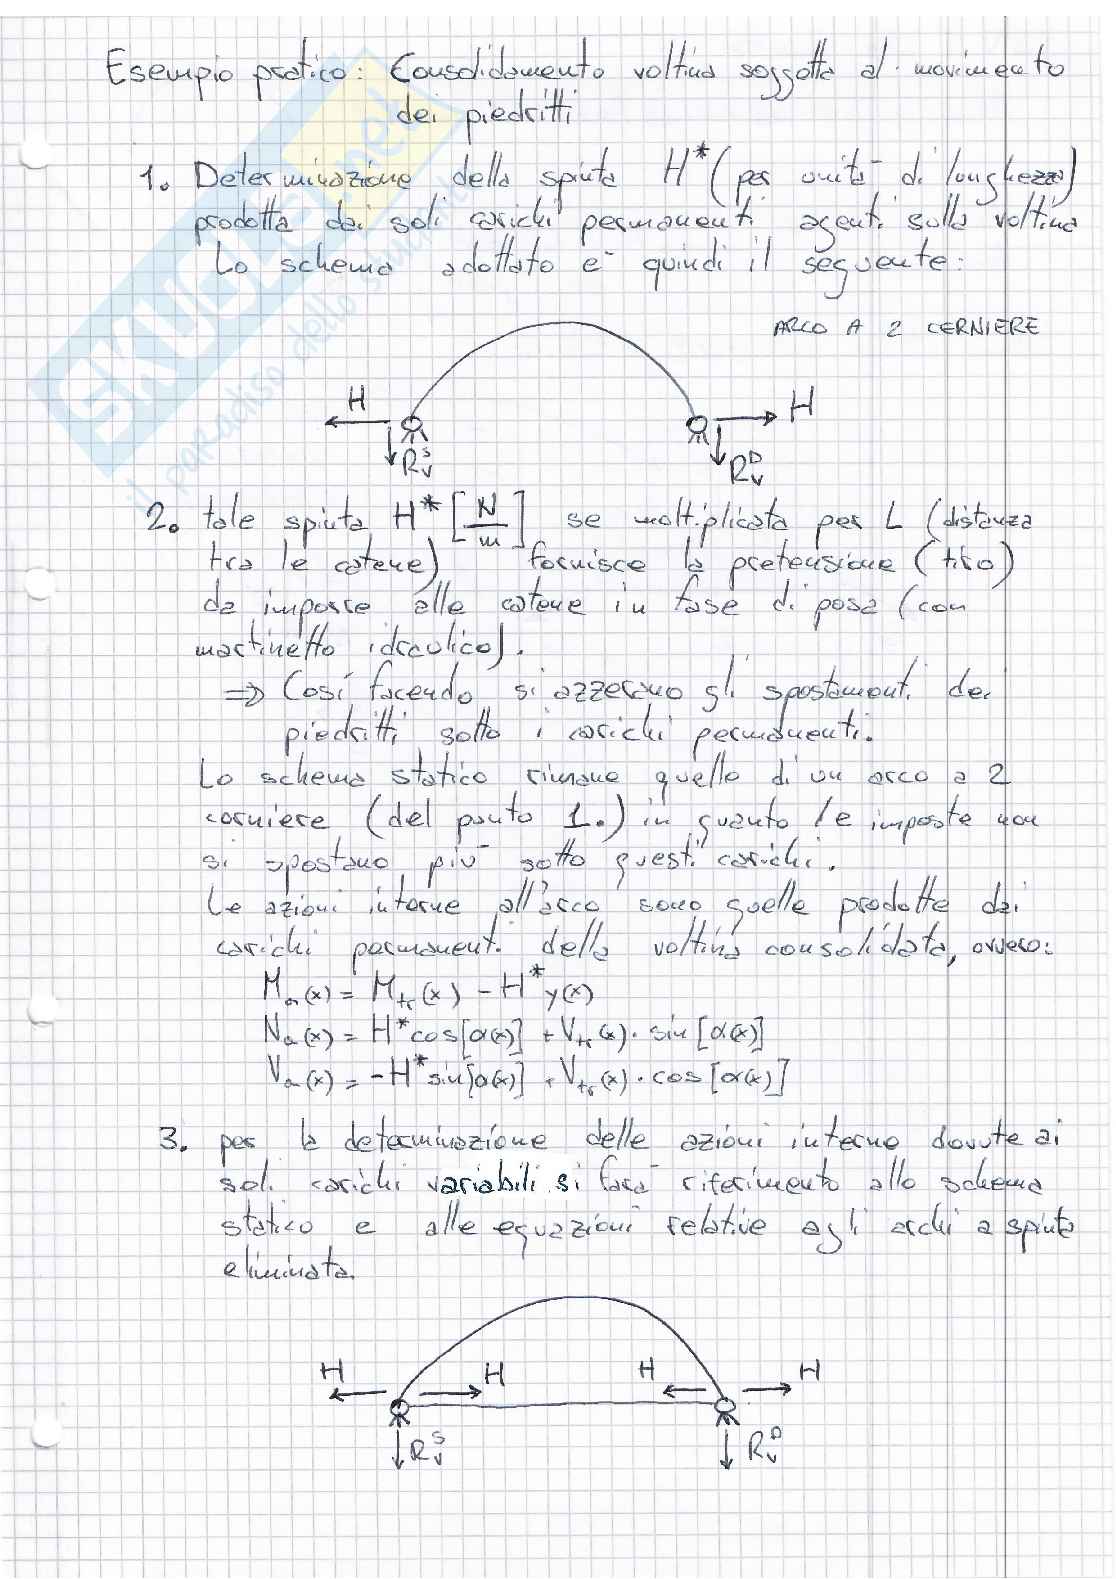 Esempio pratico: Consolidamento voltina soggetta al movimento
dei piedritti
1. Determinazione della spinta H* (per unità di lunghezza)
prodotta dai soli carichi permanenti agenti sulla voltina
Lo schema adottato è quindi il seguente:
ARCO A 2 CERNIERE
H H
R_V^S R_V^D
2. tale spinta H* [N/m] se moltiplicata per L (distanza
tra le catene) fornisce la pretensione (tiro)
da imporre alle catene in fase di posa (con
martinetto idraulico).
⇒ Così facendo si azzerano gli spostamenti dei
piedritti sotto i carichi permanenti.
Lo schema statico rimane quello di un arco a 2
cerniere (del punto 1.) in quanto le imposte non
si spostano più sotto questi carichi.
Le azioni interne all'arco sono quelle prodotte dai
carichi permanenti della voltina consolidata, ovvero:
M_a(x) = M_tr(x) - H* y(x)
N_a(x) = H* cos[α(x)] + V_tr(x) · sin[α(x)]
V_a(x) = -H* sin[α(x)] + V_tr(x) · cos[α(x)]
3. per la determinazione delle azioni interne dovute ai
soli carichi variabili si farà riferimento allo schema
statico e alle equazioni relative agli archi a spinta
eliminata.
H H H H
R_V^S R_V^D
SKUOLA.net
il paradiso dello studente